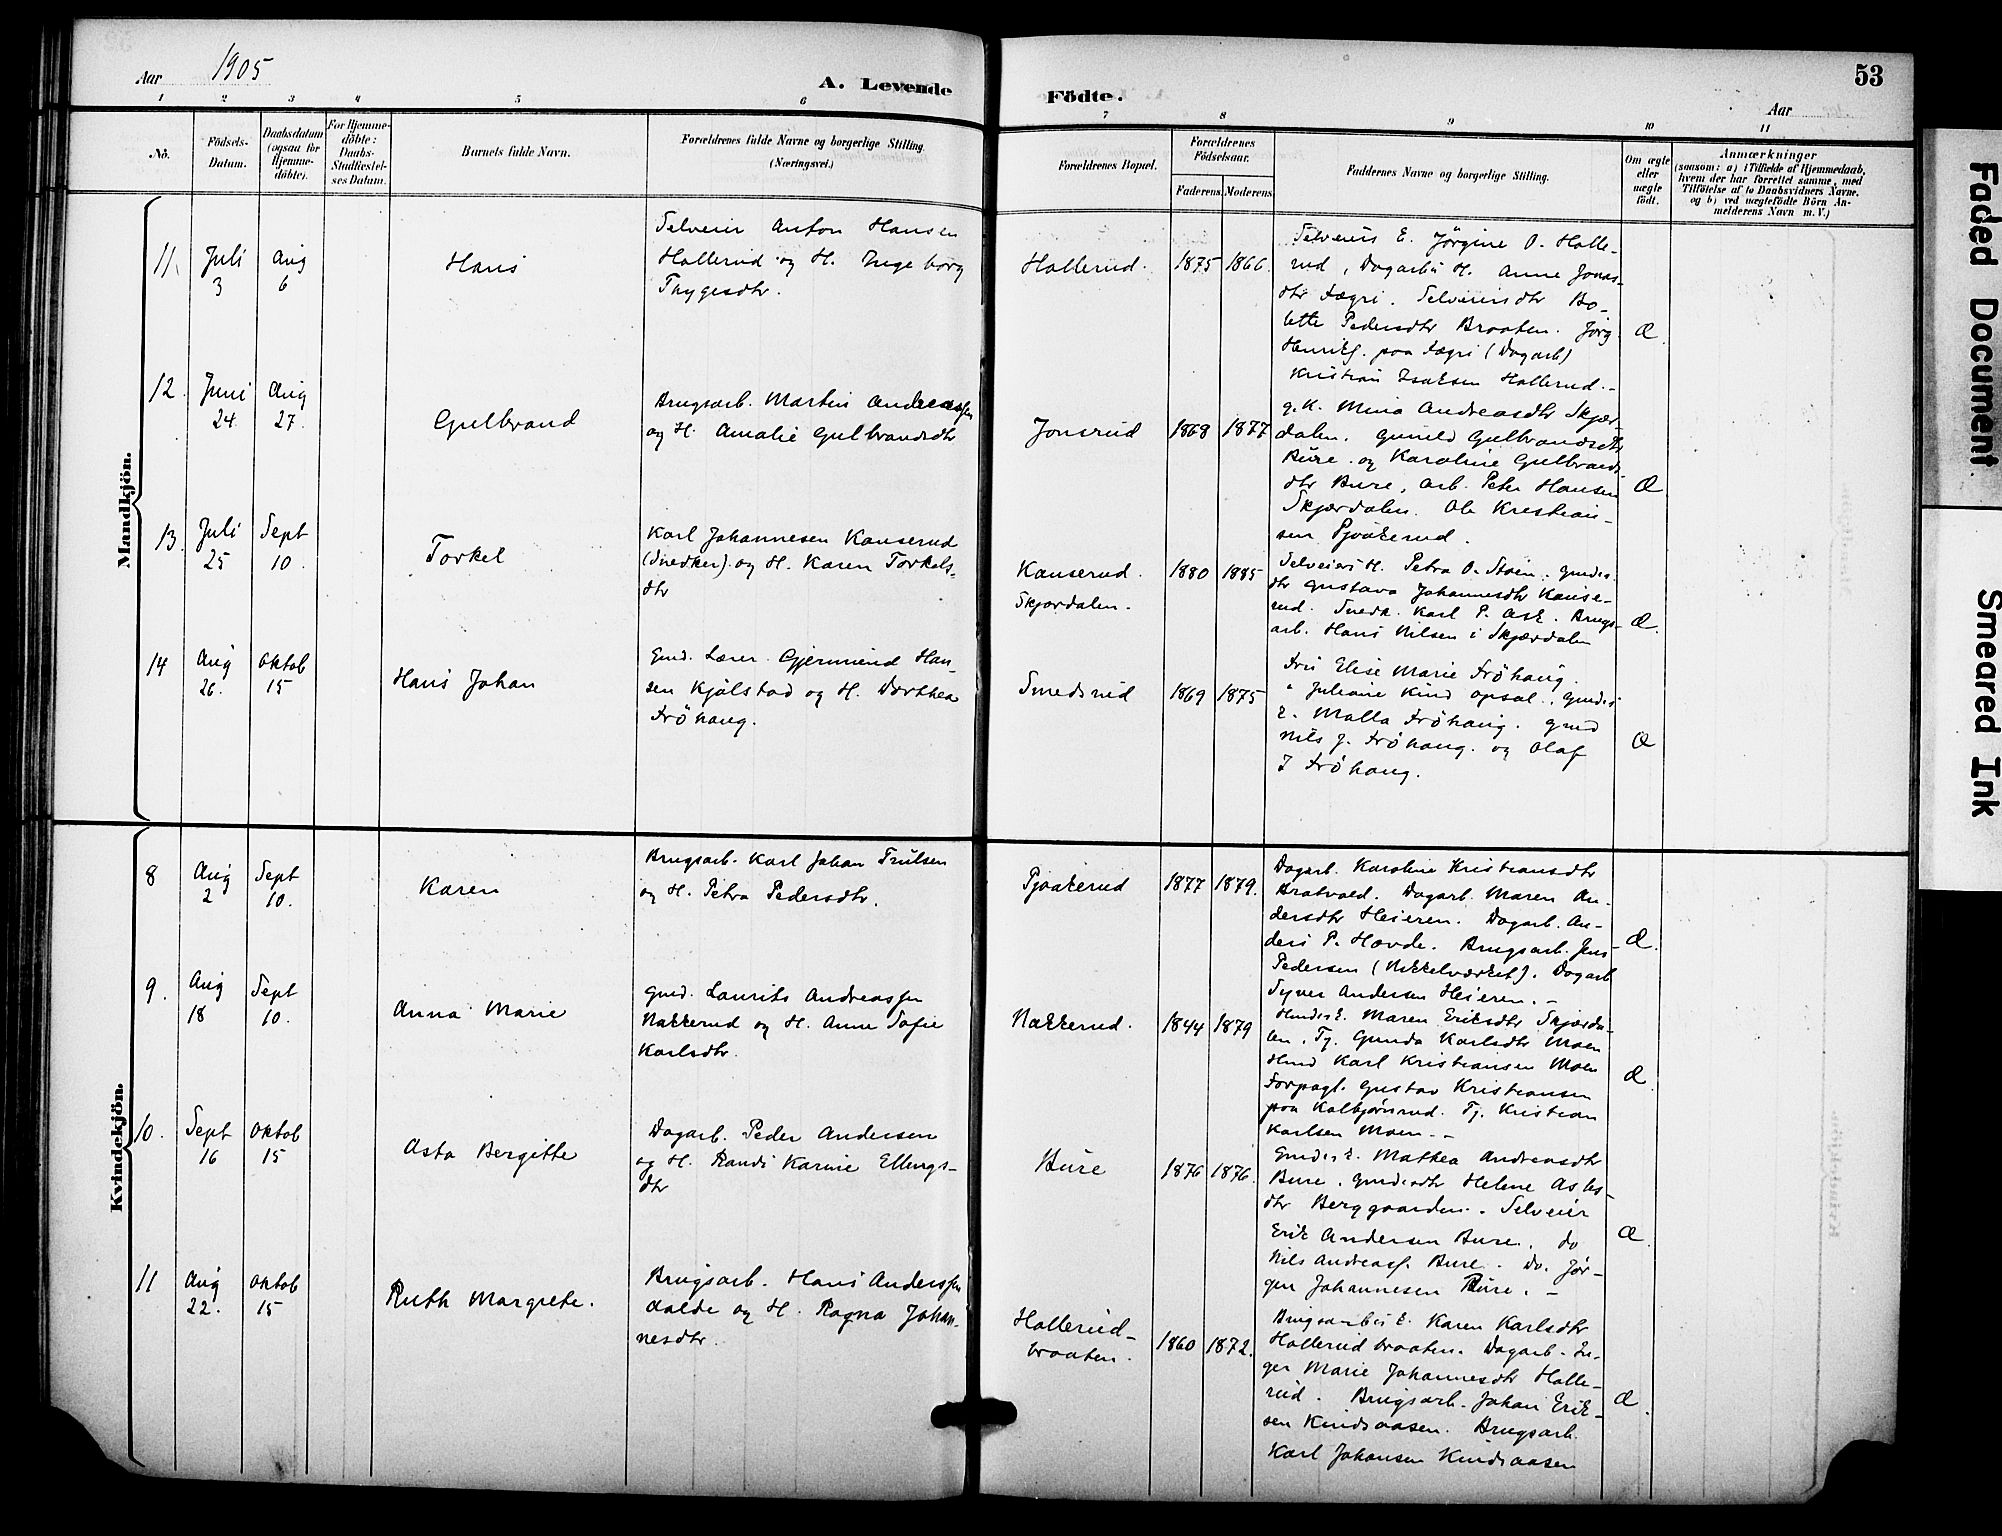 Aar 1905
A. Levende
Födte.
53
Aar
1 2 3 4 5 6 7 8 9 10 11
No.
Födsels-
Datum.
Daabsdatum
(ogsaa for
Hjemme-
döbte).
For Hjemme-
döbte:
Daabs-
Stadfæstel-
ses Datum.
Barnets fulde Navn.
Forældrenes fulde Navne og borgerlige Stilling
(Næringsvei.)
Forældrenes Bopæl.
Forældrenes
Födselsaar.
Faderens.
Moderens.
Faddernes Navne og borgerlige Stilling.
Om ægte
eller
uægte
födt.
Anmærkninger
(saasom: a) i Tilfælde af Hjemmedaab,
hvem der har forrettet samme, med
Tilföielse af to Daabsvidners Navne.
og b) ved uægtefödte Börn An-
melderens Navn m. V.)
Mandkjön.
11.
Juli
3
Aug
6
Hans
Selveier Anton Hansen
Hallerud og H. Ingeborg
Thygesdtr.
Hallerud.
1875
1866.
Selveiers E. Jörgine O. Halle-
rud, Dagarbs H. Anne Jonas-
dtr Fægri. Selveiersdtr Bo-
lette Pedersdtr Braaten. Jörg
Henriks. paa Fægri (Dagarb)
Kristian Isaksen Hallerud. -
Æ.
12.
Juni
24.
Aug
27.
Gulbrand
Brugsarb. Martin Andreassen
og H. Amalie Gulbrandsdtr
Jonsrud
1868
1877
g. K. Mina Andreasdtr Skjær-
dalen. Gunild Gulbrandsdtr
Bure. og Karoline Gulbrands-
dtr Bure, arb. Peter Hansen
Skjærdalen. Ole Kristian-
sen Pjaakerud.
Æ
13.
Juli
25
Sept
10.
Torkel
Karl Johannesen Kanserud
(Snedker) og H. Karen Torkels-
dtr
Kanserud.
Skjærdalen.
1880
1885
Selveiers H. Petra O. Stein. Gmdes.
dtr Gustava Johannesdtr Kanse-
rud. Snedk. Karl P. Ask. Brugs-
arb. Hans Nilsen i Skjærdalen
Æ.
14
Aug
26.
Oktob
15
Hans Johan
Gmd. Lærer. Gjermund Han-
sen Kjölstad og H. Dorthea
Fröhaug.
Smedsrud
1869
1875
Fru Elise Marie Fröhaug.
" Juliane Kind Opsal. Gmdes
E. Malla Fröhaug. Gmd
Nils J. Fröhaug. og Olaf
J Fröhaug.
Æ
Kvindekjön.
8
Aug
2
Sept
10.
Karen
Brugsarb. Karl Johan Trulsen
og H. Petra Pedersdtr.
Pjaakerud
1877
1879.
Dagarb. Karoline Kristiansdtr
Bratvold. Dagarb. Maren An-
dersdtr Heieren. Dagarb. An-
ders P. Hovde. Brugsarb. Jens
Pedersen (Nikkelværket). Dagarb
Syver Andersen Heieren. -
Æ.
9.
Aug
18
Sept
10.
Anna Marie
Gmd. Laurits Andreassen
Nakkerud og H. Anne Sofie
Karlsdtr.
Nakkerud.
1844
1879
Hmdes E. Maren Eriksdtr Skjærda-
len. Tj. Gunda Karlsdtr Moen
Hmd Karl Kristiansen Moen
Forpagt. Gustav Kristiansen
paa Kolbjörnrud. Tj. Kristian
Karlsen Moen. -
Æ.
10.
Sept
16
Oktob
15
Asta Bergitte
Dagarb. Peder Andersen
og H. Randi Karine Ellings-
dtr
Bure
1876
1876.
Gmdes E. Mathea Andreasdtr
Bure. Gmdesdtr Helene Asles-
dtr Berggaarden. Selveier
Erik Andersen Bure. do
Nils Andreass. Bure. Do. Jör-
gen Johannesen Bure. -
Æ.
11
Aug
22.
Oktob
15
Ruth Margrete.
Brugsarb. Hans Anderssen
Aalde og H. Ragna Johan-
nesdtr.
Hallerud-
braaten.
1860
1872.
Brugsarbes E. Karen Karlsdtr
Hallerudbraaten. Dagarb. In-
ger Marie Johannesdtr Halle-
rud. Brugsarb. Johan Erik-
sen Kindsaasen. Brugsarb.
Karl Johansen Kindsaasen
Æ.
Faded Document
Smeared Ink